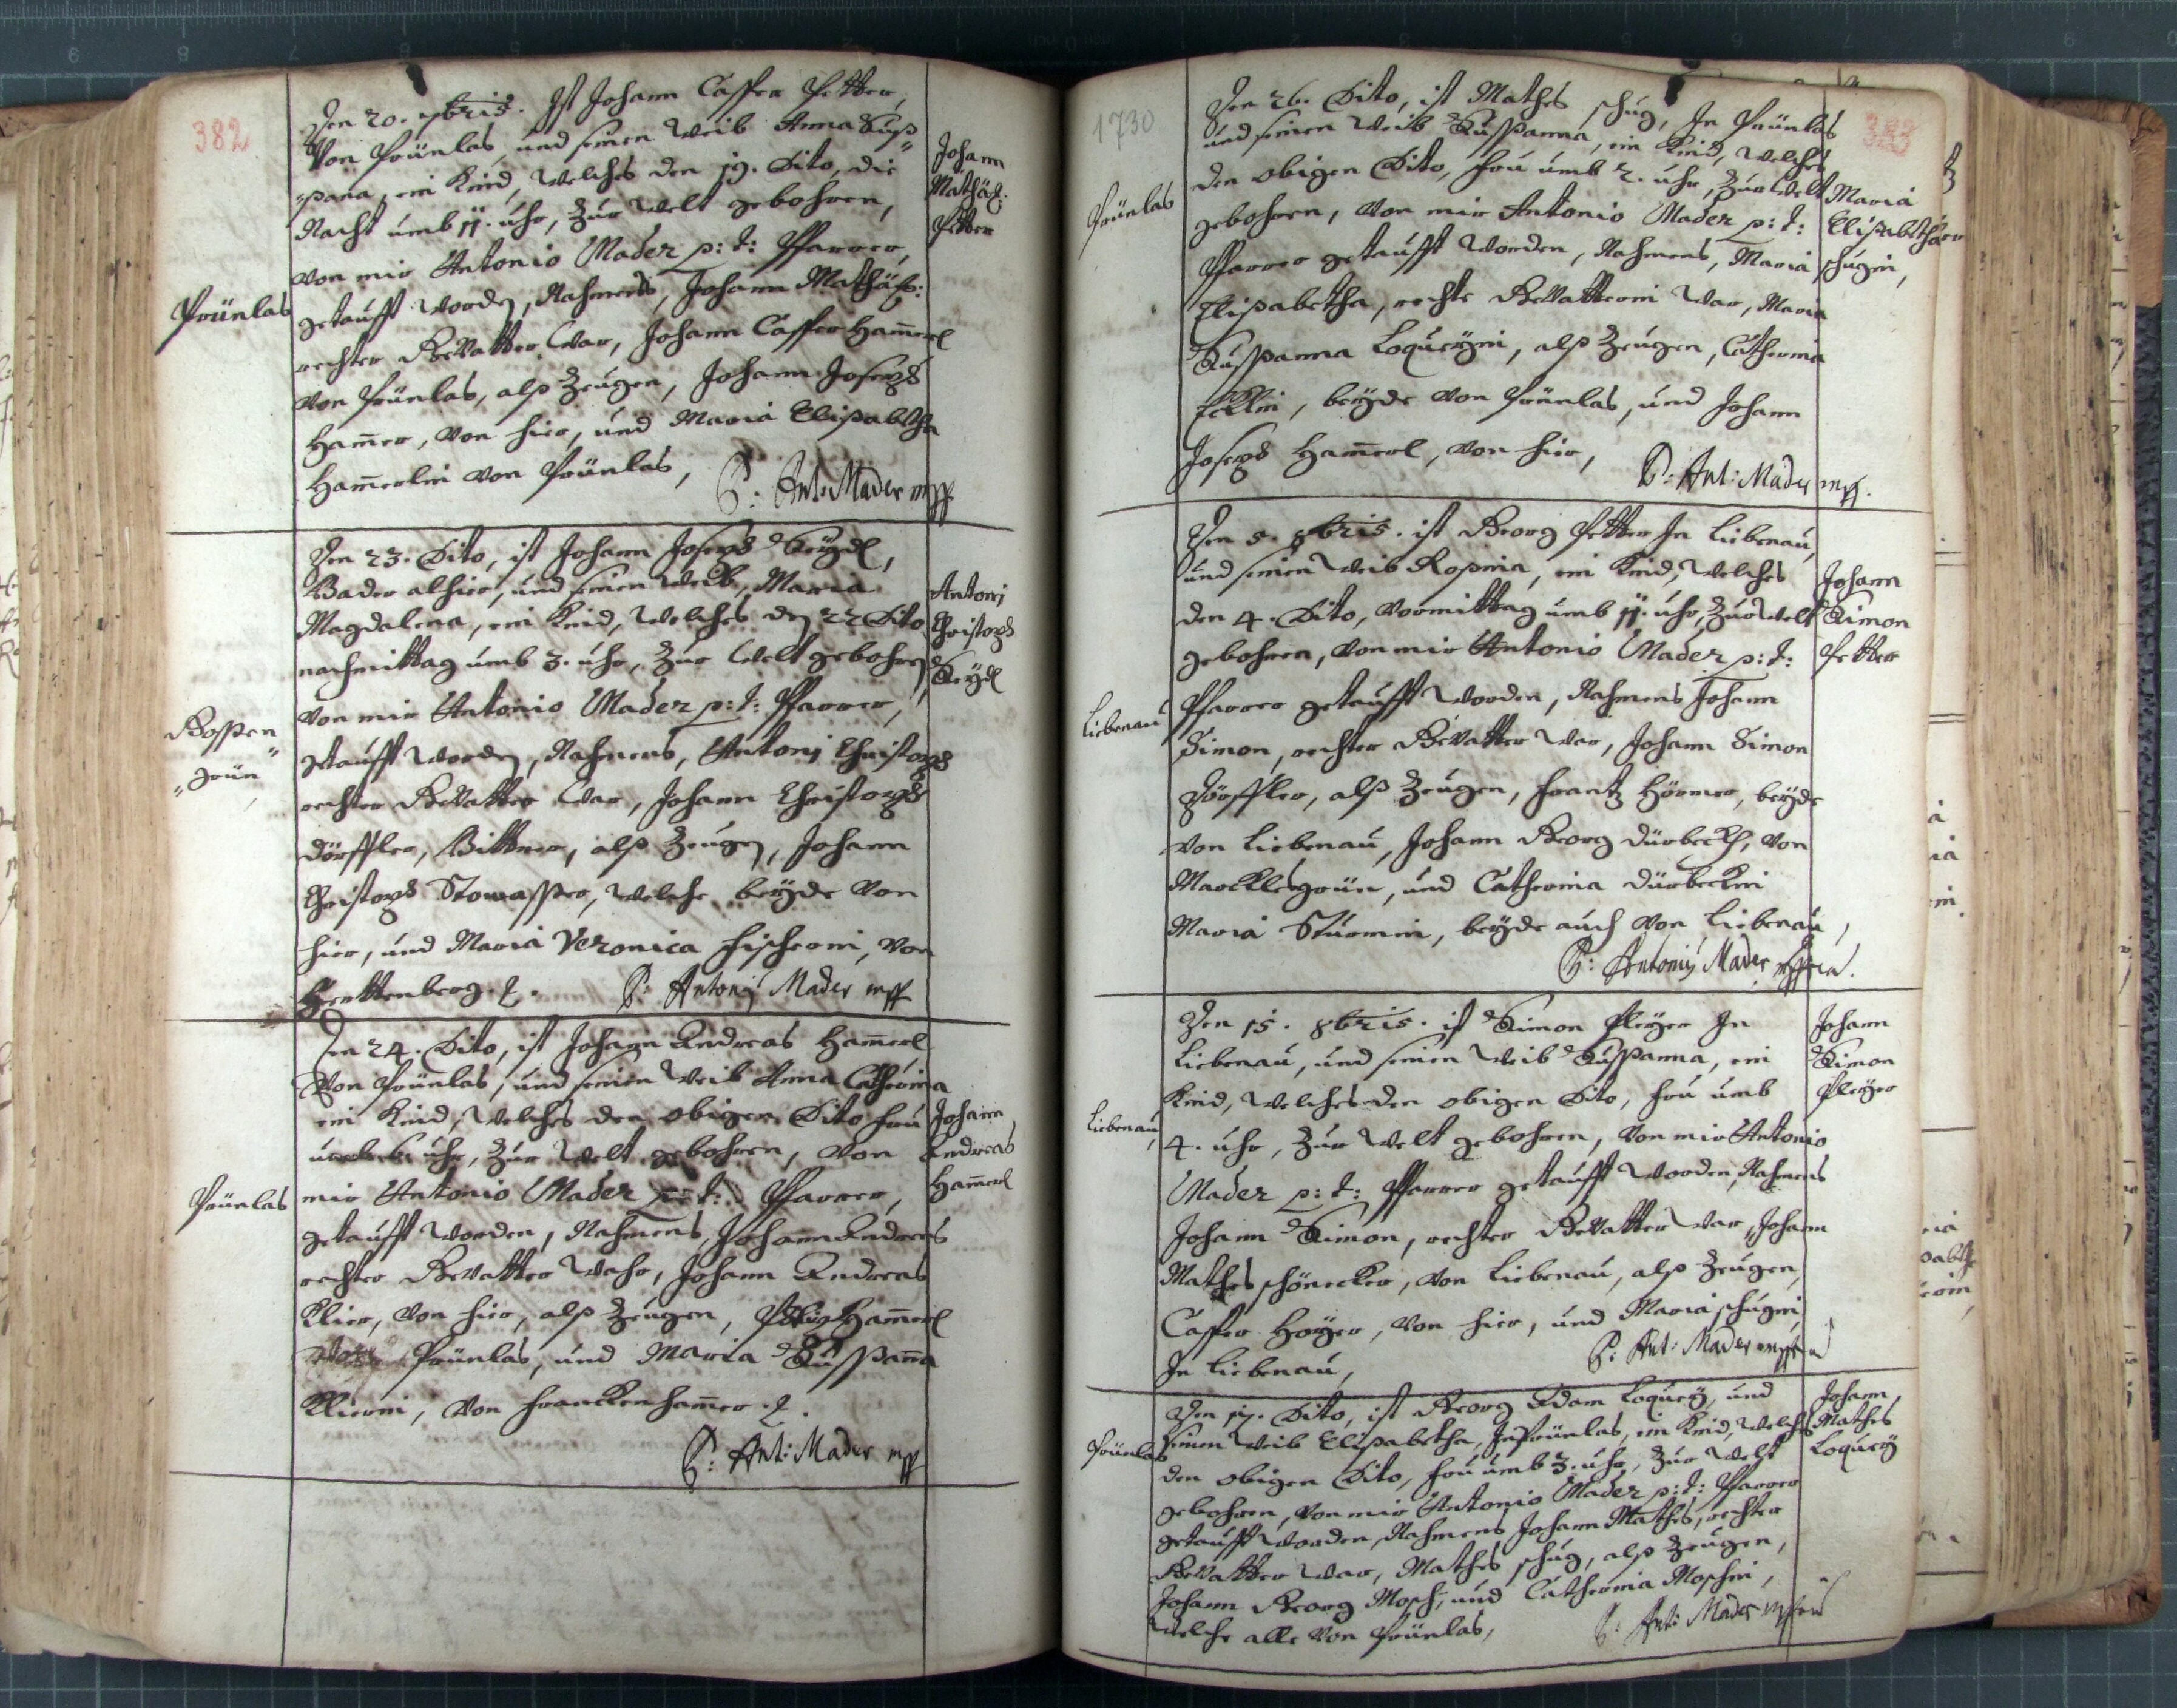 382
Den 20. 7bris. Ist Johann Casper Petter,
Von Prünlas, und seinen Weib Anna Suß„
„sana, ein Kind, welches den 19. Dito, die
Nacht umb 11. uhr, Zur Welt gebohren,
von mir Antonio Mader p: t: Pfarrer,
getaufft worden, Nahmens, Johann Mathäß:
rechter Gevatter war, Johann Casper Ham̄erl
von Prünlas, alß Zeugen, Johann Joseph
Ham̄er, von hier, und Maria Elisabetha
Ham̄erlin von Prünlas,
P: Ant: Mader mpp
Prünlas
Johann
Mathäß:
Petter
Den 23. Dito, ist Johann Joseph Seÿdl,
Bader alhier, und seinen Weib, Maria
Magdalena, ein Kind, welches den 22 Dito
nachmittag umb 3. uhr, Zur Welt gebohren,
von mir Antonio Mader p: t: Pfarrer,
getaufft worden, Nahmens, Antoni Christoph
rechter Gevatter war, Johann Christoph
Dörffler, Bittner, alß Zeugen, Johann
Christoph Stowasser, welche beÿde von
hier, und Maria Veronica Fischerin, von
Herttenberg. P: Antonÿ Mader mpp
Gossen„
„grün
Antoni
Christoph
Seÿdl
Den 24. Dito, ist Johann Andreas Ham̄erl
Von Prünlas, und seinen Weib Anna Catherina
ein Kind, welches den obigen Dito fru
umb 6. uhr, Zur Welt gebohren, von
mir Antonio Mader p: t: Pfarrer,
getaufft worden, Nahmens, Johann Andreas
rechter Gevatter wahr, Johann Andreas
Klier, von hier, alß Zeugen, Ham̄erl
von Prünlas, und Maria Sussan̄a
Klierin, von Franckenham̄er.
P: Ant: Mader mpp
Prünlas
Johann
Andreas
Ham̄erl
1730
383
Den 26. Dito, ist Mathes Schug, In Prünlas
und seinen Weib Sussanna, ein Kind, welches
den obigen Dito, fru umb 2. uhr, Zur Welt
gebohren, von mir Antonio Mader p: t:
Pfarrer getaufft worden, Nahmens, Maria
Elisabetha, rechte Gevatterin war, Maria
Sussanna Loqueÿin, alß Zeugen, Catherina
beÿde von Prünlas, und Johann
Joseph Ham̄erl, von hier,
P: Ant: Mader mpp.
Prünlas
Maria
Elisabetha
Schugin,
Den 5. 8bris. ist Georg Petter In Liebenau,
und seinen Weib Rosina, ein Kind, welches
den 4. Dito, vormittag umb 11. uhr, Zur Welt
gebohren, von mir Antonio Mader p: t:
Pfarrer getaufft worden, Nahmens Johann
Simon, rechter Gevatter war, Johann Simon
Dörffler, alß Zeugen, Frantz Hörner, beÿde
von Liebenau, Johann Georg Dürbeckh, von
Marcklesgrün, und Catherina Dürbeckin
Maria Sturmin, beÿde auch von Liebenau,
P: Antoniÿ Mader mppria.
Liebenau
Johann
Simon
Petter
Den 15. 8bris. ist Simon Pleÿer In
Liebenau, und seinen Weib Sussanna, ein
Kind, welches den obigen Dito, fru umb
4. uhr, Zur Welt gebohren, von mir Antonio
Mader p: t: Pfarrer getaufft worden, Nahmens
Johann Simon, rechter Gevatter war, Johann
Mathes Schönecker, von Liebenau, alß Zeugen,
Casper Hoÿer, von hier, und Maria Schugin,
In Liebenau,
P: Ant: Mader mppria
Liebenau,
Johann
Simon
Pleÿer
Den 17. Dito, ist Georg Adam Loqueÿ, und
seinen Weib Elisabetha, In Prünlas, ein Kind, welches
den obigen Dito, fru umb 3. uhr, Zur Welt
gebohren, von mir Antonio Mader p: t: Pfarrer
getaufft worden, Nahmens Johann Mathes, rechter
Gevatter war, Mathes Schug, alß Zeugen,
Johann Georg Mosch, und Catherina Moschin,
welche alle von Prünlas,
P: Ant: Mader mppria
Prünlas
Johann
Mathes
Loqueÿ